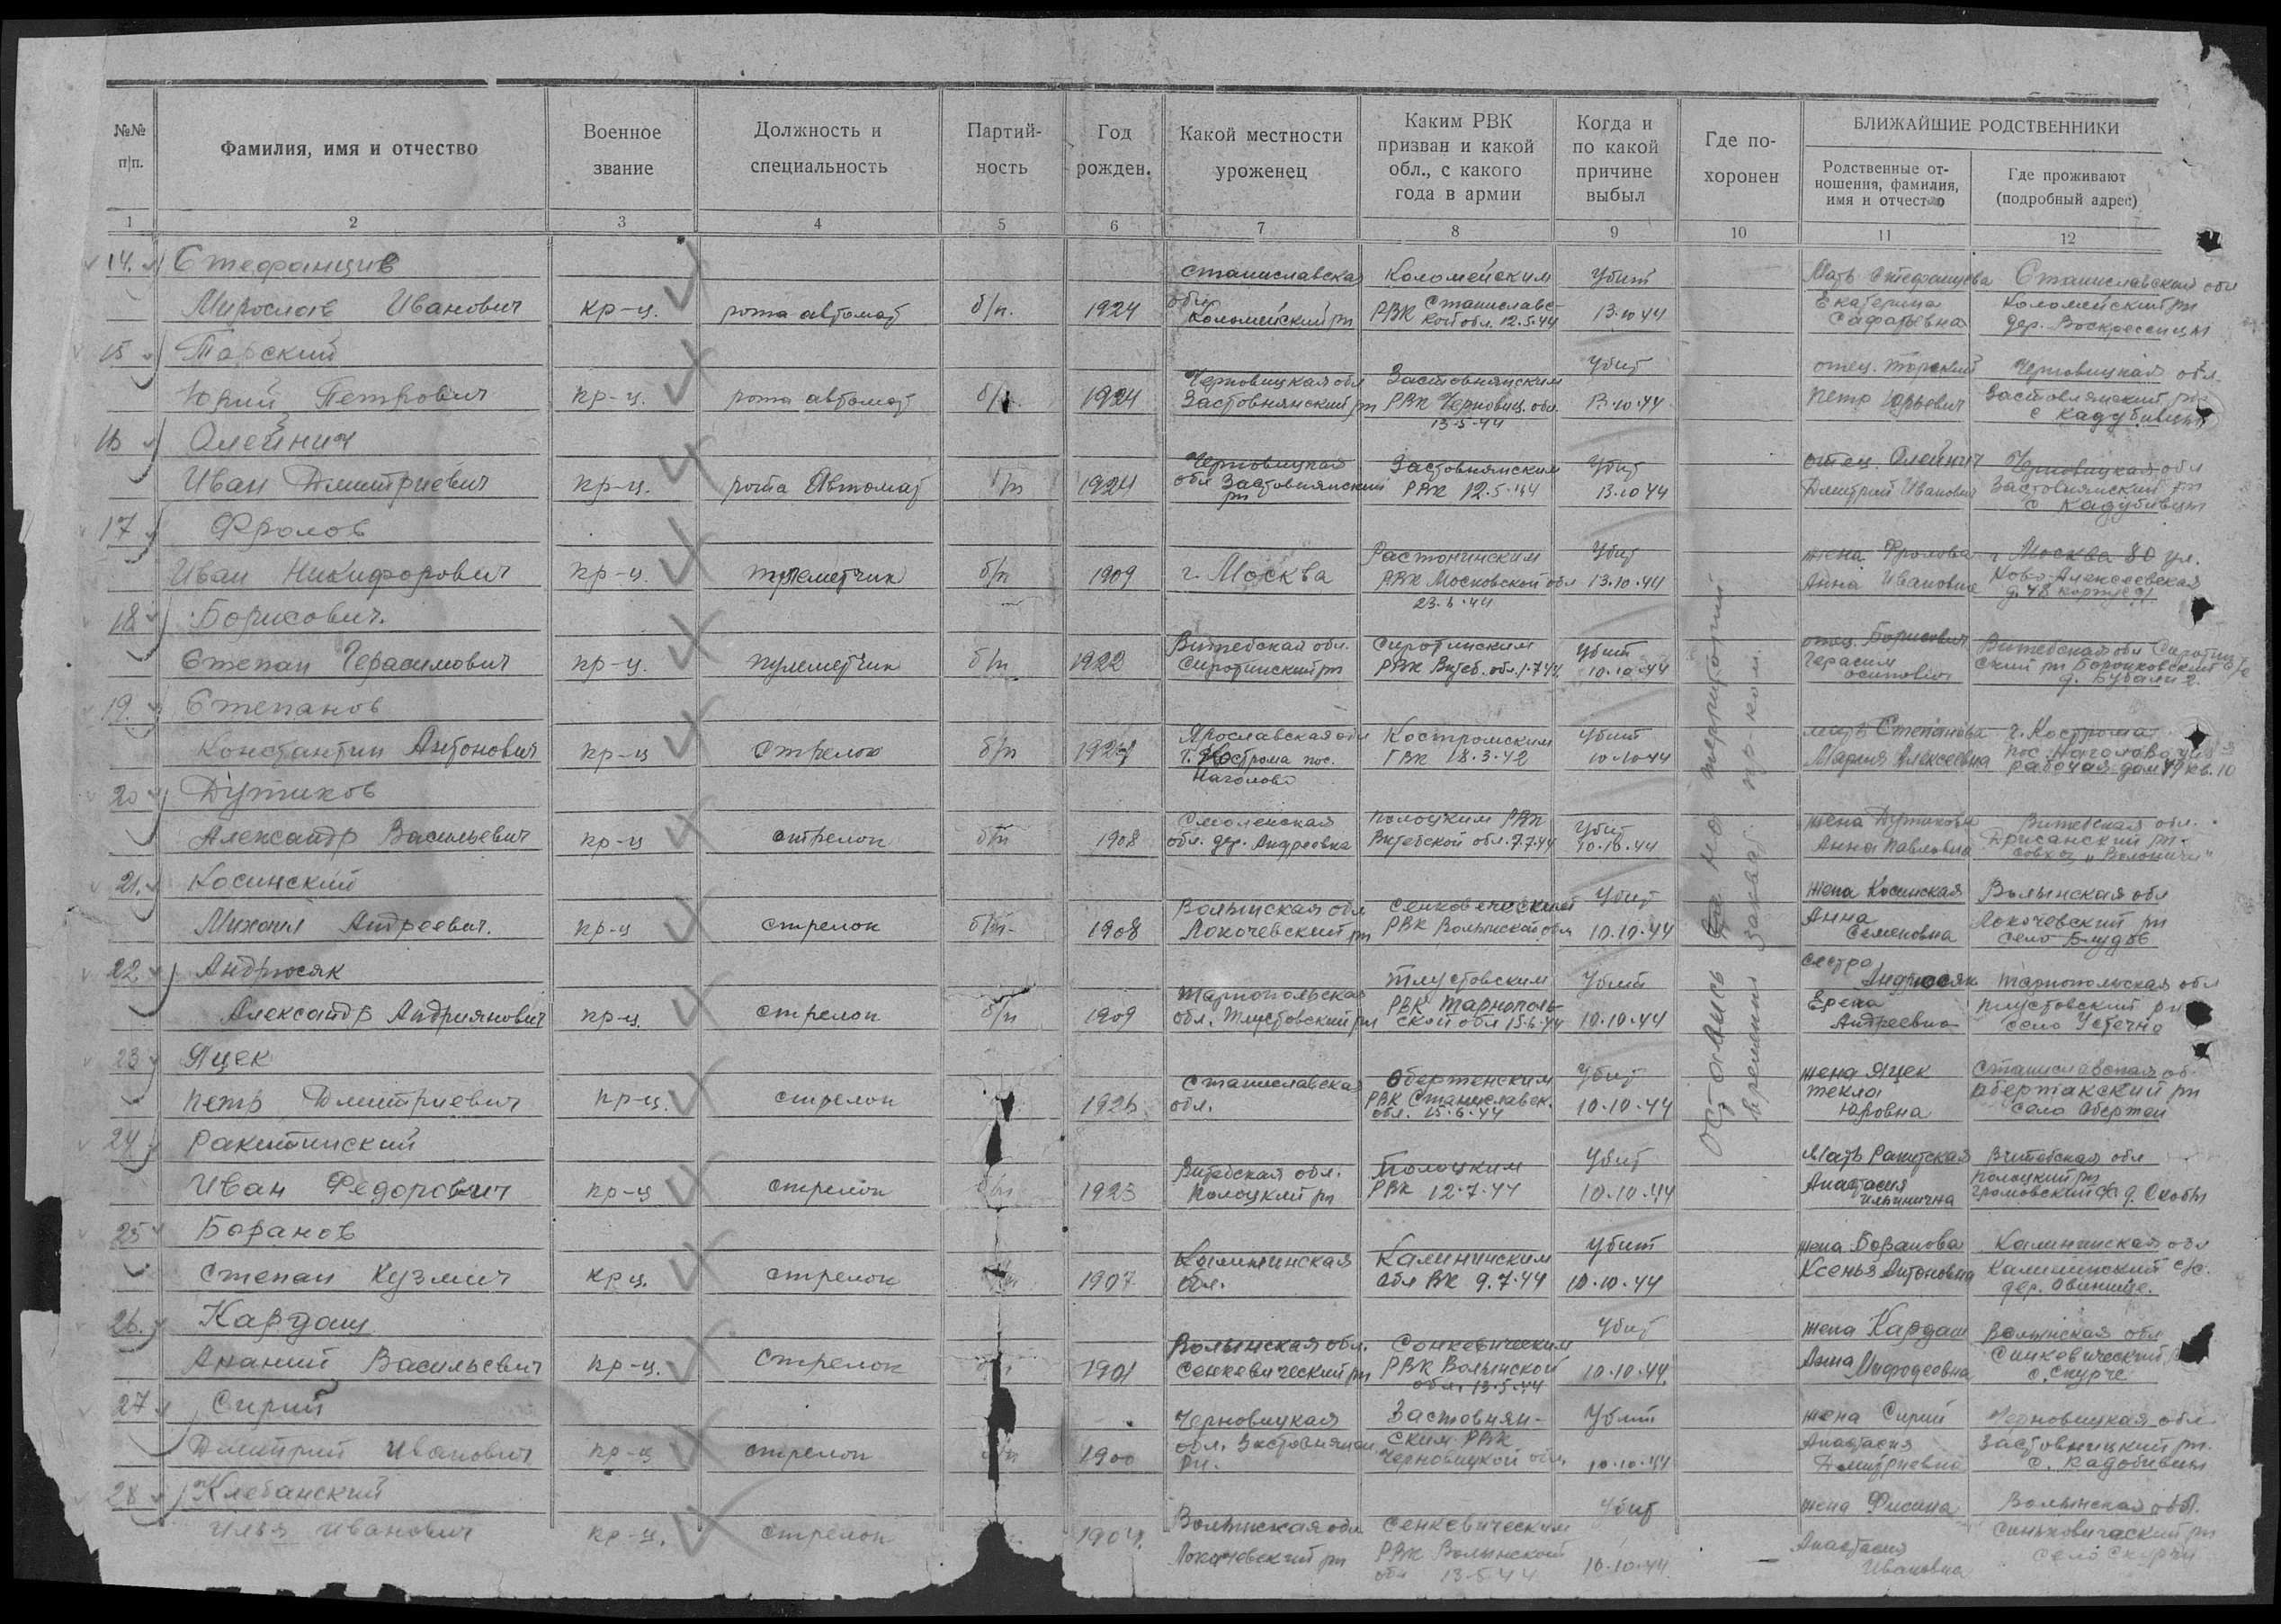 №№ п/п.
Фамилия, имя и отчество
Военное звание
Должность и специальность
Партий-ность
Год рожден.
Какой местности уроженец
Каким РВК призван и какой обл., с какого года в армии
Когда и по какой причине выбыл
Где по-хоронен
БЛИЖАЙШИЕ РОДСТВЕННИКИ
Родственные от-ношения, фамилия, имя и отчество
Где проживают (подробный адрес)
1 2 3 4 5 6 7 8 9 10 11 12
14. Стефанцив
Мирослав Иванович кр-ц. рота автомат б/п. 1924 Станиславская обл. Коломейский рн Коломейским РВК Станиславс-кой обл. 12.5.44 Убит 13.10.44 Мать Стефанцева Екатерина Станиславской обл Коломейский рн дер. Воскресенцы
15 Тарский
Юрий Петрович кр-ц. рота автомат б/п. 1924 Черновицкая обл Заставнянский рн Застовнянским РВК Черновиц. обл. 13-5-44 Убит 13.10.44 отец. Торский Петр Юрьевич Черновицкая обл. Застовлянский рн с Кадубивцы
16 Олейнич
Иван Дмитриевич кр-ц. рота Автомат б/п 1924 Черновицкая обл Застовнянский рн Застовнянским РВК 12.5.44 Убит 13.10.44 отец. Олейнич Дмитрий Иванович Черновицкая обл Застовнянский рн с Кадубивцы
17 Фролов
Иван Никифорович кр-ц. пулеметчик б/п 1909 г. Москва РВК Московской обл 23.6.44 Убит 13.10.44 жена Фролова Анна Ивановна г Москва 80 ул. Ново-Алексеевская д. 48 корпус 91
18 Борисович.
Степан Герасимович кр-ц. пулеметчик б/п 1922 Витебская обл. Сиротинский рн Сиротинским РВК Витеб. обл. 1.7.44 Убит 10.10.44 отец. Борисович Герасим Осипович Витебская обл Сиротин ский рн Боронковский с/с
19. Степанов
Константин Антонович кр-ц Стрелок б/п Ярославская обл г. Кострома пос. Наголово Костромским ГВК 18.3.42 Убит 10.10.44 мать Степанова Мария Алексеевна г. Кострома рабочая дом 19 кв. 10
20 Дутиков
Александр Васильевич кр-ц стрелок б/п 1908 Смоленская обл. дер. Андреевка Полоцким РВК Витебской обл. 7.7.44 Убит 10.10.44 жена Дутикова Анна Павловна Витебская обл. Дрисанский рн.
21. Косинский
Михаил Андреевич. кр-ц стрелок б/п. 1908 Волынская обл Локочевский рн РВК Волынской обл Убит 10.10.44 жена Косинская Анна Семеновна Волынская обл Локочевский рн село Блудов
22 Андрюсяк
Александр Андриянович кр-ц. стрелок б/п 1909 Тарнопольская обл. Тлустовский рн Тлустовским РВК Тарнополь-ской обл 15.6.44 Убит 10.10.44 сестра Андрюсяк Ерена Андреевна Тарнопольская обл Тлустовский рн село Устечно
23 Яцек
Петр Дмитриевич кр-ц. стрелок 1926 Станиславская обл. Обертенским РВК Станиславск. обл. 15.6.44 Убит 10.10.44 жена Яцек Текла Юровна Станиславская об. Обертакский рн село Обертен
24 Ракитинский
Иван Федорович кр-ц стрелок б/п 1923 Витебская обл. Полоцкий рн Полоцким РВК 12.7.44 Убит 10.10.44 Мать Анастасия Ильинична Витебская обл Полоцкий рн
25 Боранов
Степан Кузмич кр-ц. стрелок 1907 Калининская обл. Калининским Обл ВК 9.7.44 Убит 10.10.44 жена Боранова Ксенья Антоновна Калининская обл Калининский с/с.
26. Кардаш
Ананий Васильевич кр-ц. стрелок 1901 Волынская обл. Сенкевический рн Сенкевическим РВК Волынской обл. 13.5.44 Убит 10.10.44 жена Кардаш Анна Волынская обл Синковический с. Скурче
27 Сирий
Дмитрий Иванович кр-ц стрелок 1900 Черновицкая обл. рн. Застовнян-ским РВК Черновицкой обл. Убит 10.10.44 жена Сирий Анастасия Дмитриевна Черновицкая обл. Застовницкий рн. с. Кадобивцы
28 Клебанский
Илья Иванович кр-ц. стрелок 1904. Волынская обл Локачевский рн Сенкевическим РВК Волынской обл 13-5-44 Убит 10.10.44 жена Анастасия Ивановна Волынская обл. Синьковический рн село Скурчи
Остались на территории
пр-ком.